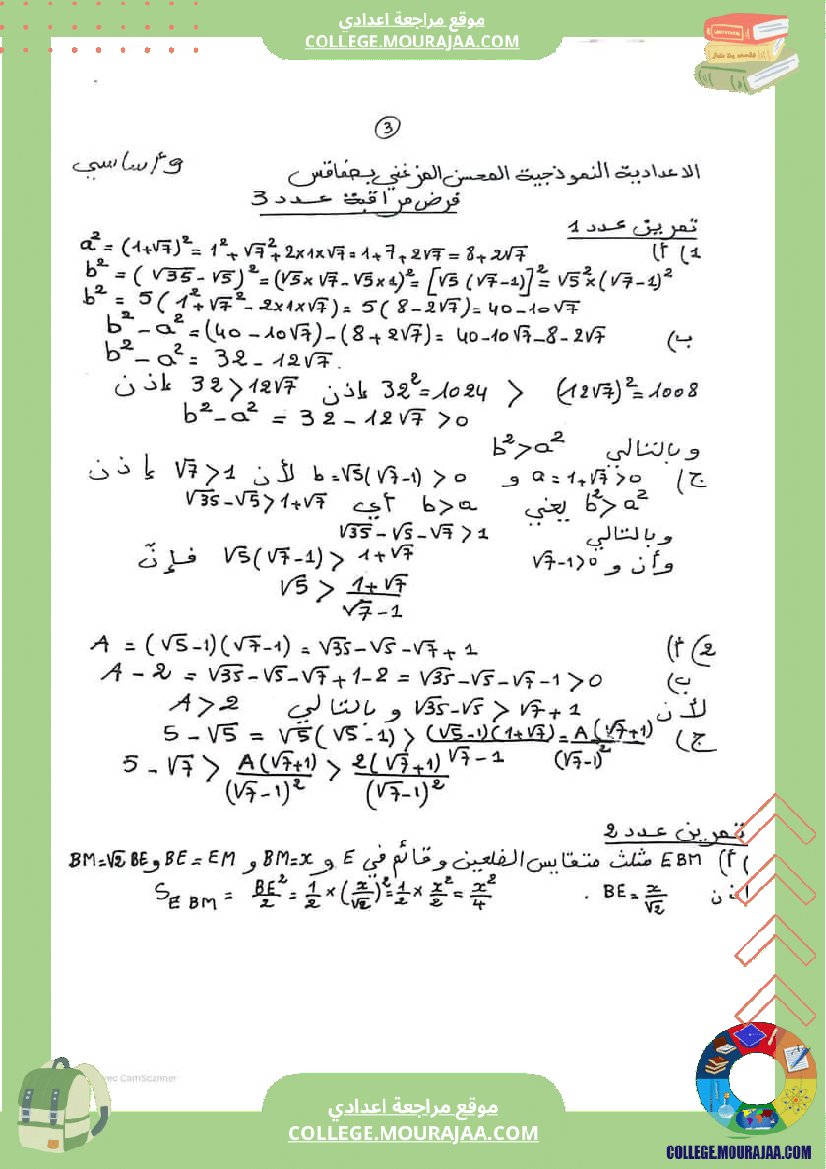 موقع مراجعة اعدادي
COLLEGE.MOURAJAA.COM
3
الاعدادية النموذجية المحسن المزغني بصفاقس
9 أساسي
فرض مراقبة عدد 3
تمرين عدد 1
1) أ) a² = (1+√7)² = 1² + √7² + 2×1×√7 = 1+7+2√7 = 8+2√7
b² = (√35 - √5)² = (√5×√7 - √5×1)² = [√5(√7-1)]² = √5² × (√7-1)²
b² = 5(1² + √7² - 2×1×√7) = 5(8-2√7) = 40-10√7
ب) b² - a² = (40-10√7) - (8+2√7) = 40-10√7-8-2√7
b² - a² = 32 - 12√7.
(12√7)² = 1008 < 32² = 1024 إذن 32 > 12√7 إذن
b² - a² = 32 - 12√7 > 0
وبالتالي b² > a²
ج) a = 1+√7 > 0 و b = √5(√7-1) > 0 لأن √7 > 1 إذن
b² > a² يعني b > a أي √35-√5 > 1+√7
وبالتالي √35 - √5 - √7 > 1
وأن و √7-1 > 0 √5(√7-1) > 1+√7 فإنّ
√5 > (1+√7)/(√7-1)
2) أ) A = (√5-1)(√7-1) = √35-√5-√7+1
ب) A - 2 = √35-√5-√7+1-2 = √35-√5-√7-1 > 0
لأن √35-√5 > √7+1 وبالتالي A > 2
ج) 5-√5 = √5(√5-1) > (√5-1)(1+√7)/(√7-1) = A(√7+1)/(√7-1)²
5-√7 > A(√7+1)/(√7-1)² > 2(√7+1)/(√7-1)²
تمرين عدد 2
) أ) EBM مثلث متقايس الضلعين وقائم في E و BM=x و BE=EM و BM=√2 BE
إذن BE = x/√2 . S_EBM = BE²/2 = 1/2 × (x/√2)² = 1/2 × x²/2 = x²/4
vec CamScanner
موقع مراجعة اعدادي
COLLEGE.MOURAJAA.COM
COLLEGE.MOURAJAA.COM